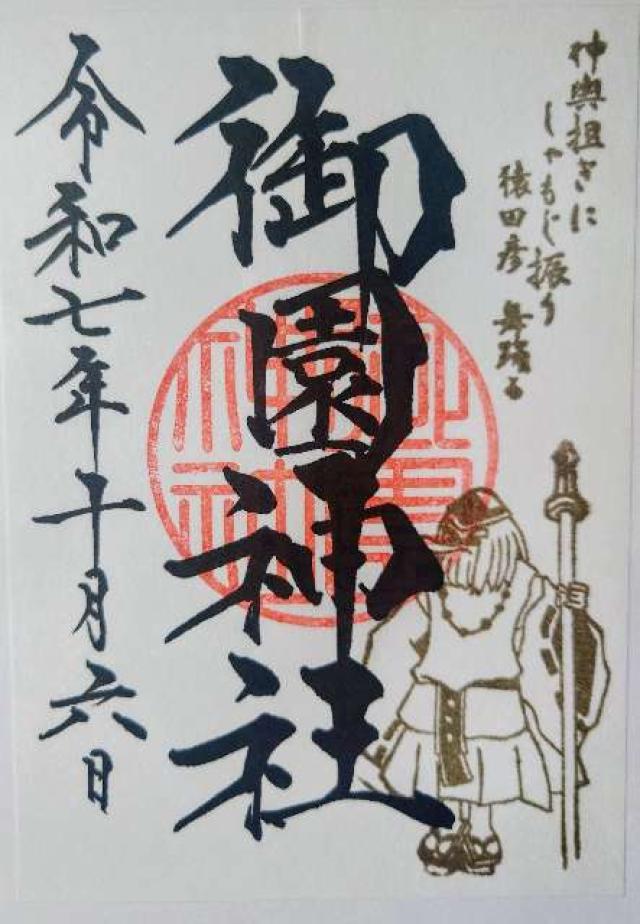 神輿担ぎに
しゃもじ振り
猿田彦 舞踊る
御園神社
令和七年十月六日